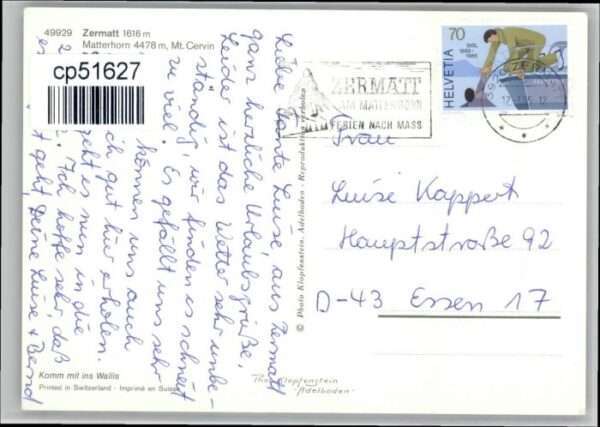 49929 Zermatt 1616 m
Matterhorn 4478 m, Mt. Cervin
cp51627
Liebe Tante Luise, aus Zermatt
ganz herzliche Urlaubsgrüße.
Leider ist das Wetter sehr unbe-
ständig, wir finden es schneit
zu viel. Es gefällt uns sehr
können uns auch
ich gut hier erholen.
geht es nun in die
2. Ich hoffe sehr, daß
es geht, Deine Luise + Bernd
Komm mit ins Wallis
Printed in Switzerland - Imprimé en Suisse
© Photo Klopfenstein, Adelboden - Reproduktion verboten
Photo Klopfenstein
Adelboden
ZERMATT
AM MATTERHORN
FERIEN NACH MASS
70
HELVETIA
Frau
Luise Kappert
Hauptstraße 92
D-43 Essen 17